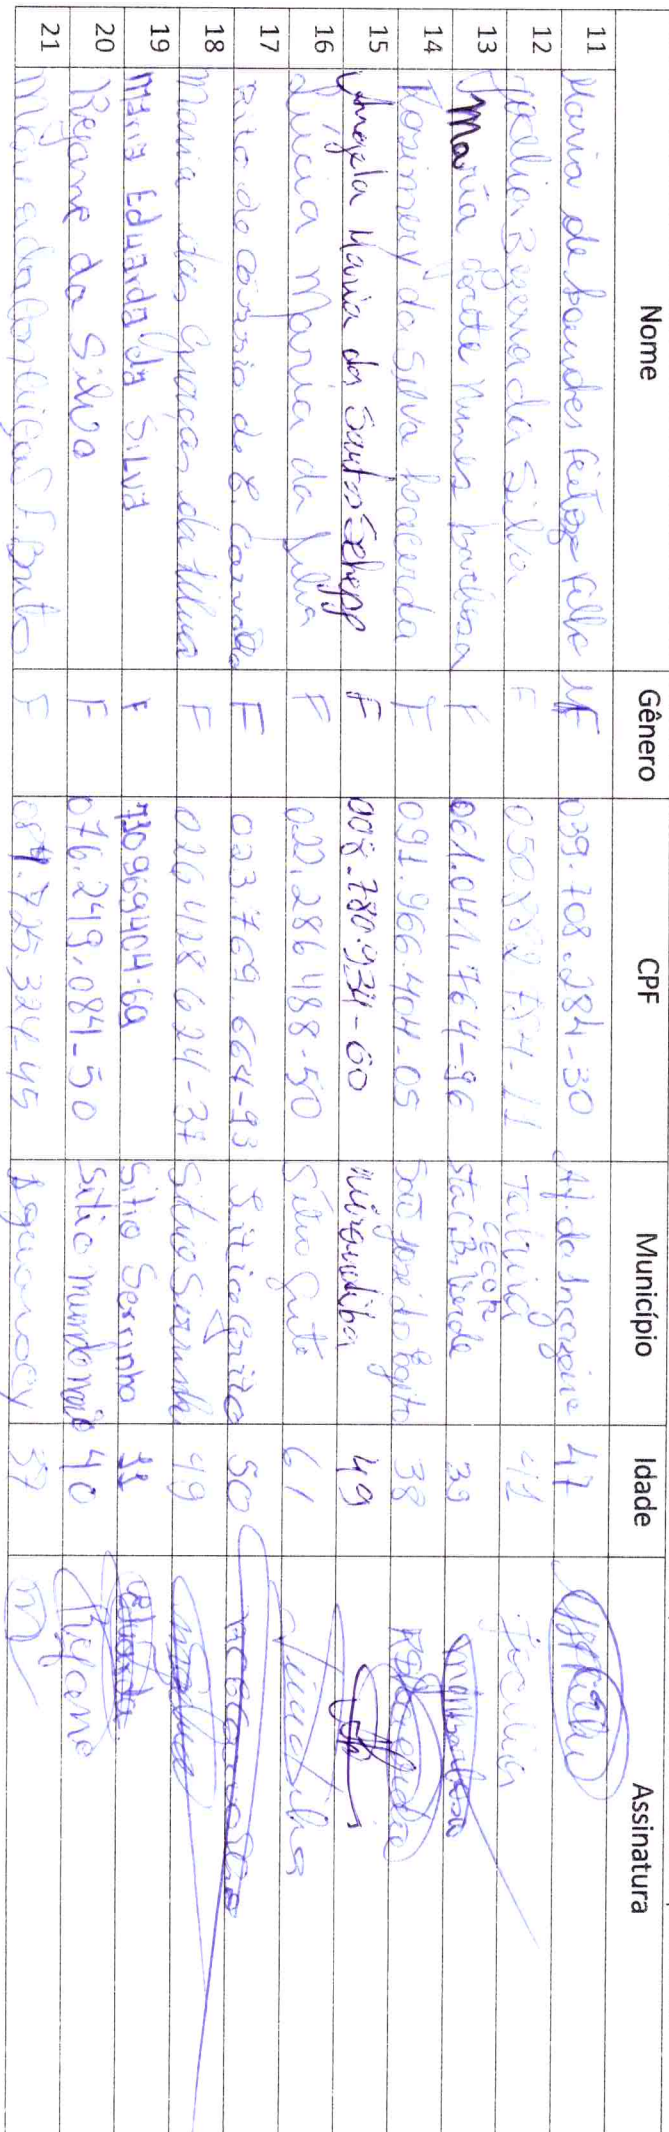 Nome Gênero CPF Município Idade Assinatura
11 Maria de Lourdes Feitosa Filha F 039.708.284-30 Af. da Ingazeira 47
12 Jocelia Bezerra da Silva F 050 Tabira 41 Jocelia
13 Maria Nunes Barbosa F 061.041.764-96 Sta C. B. Verde CECOR 39 MNBarbosa
14 Rosimery da Silva Lacerda F 091.966.404-05 São José do Egito 38
15 Angela Maria dos Santos Schepp F 008.780.934-60 Mirandiba 49
16 Lucia Maria da Silva F 022.286488-50 Sitio Grito 61 Lucia Silva
17 Rita de Cassia de C. Carvalho F 023.769.664-93 Sitio Grito 50
18 Maria das Graças da Silva F 026428624-37 Sitio Serrinha 49
19 Maria Eduarda da Silva F 730969404-69 Sitio Serrinha Eduarda
20 Rejane da Silva F 076.249.084-50 Sitio Mundo Novo 40 Rejane
21 Maria da Conceição F. Brito F 087.725.324-45 37